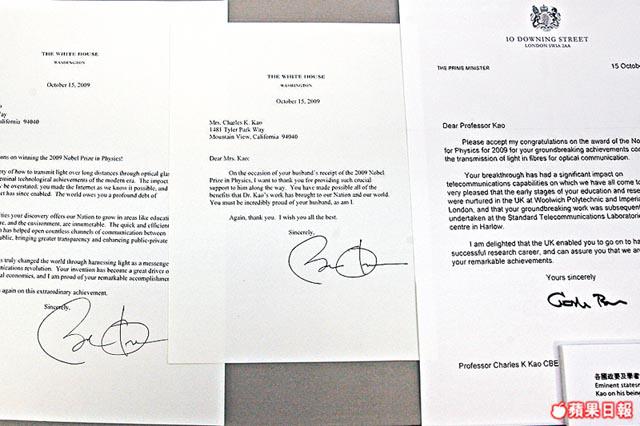 THE WHITE HOUSE
WASHINGTON
October 15, 2009
Way
California 94040
ons on winning the 2009 Nobel Prize in Physics!
ery of how to transmit light over long distances through optical glass
seminal technological achievements of the modern era. The impact
be overstated; you made the Internet as we know it possible, and
t has since enabled. The world owes you a profound debt of
ities your discovery offers our Nation to grow in areas like education
are, and the environment, are innumerable. The quick and efficient
on has helped open countless channels of communication between
public, bringing greater transparency and enhancing public-private
as truly changed the world through harnessing light as a messenger
unications revolution. Your invention has become a great driver of
al economies, and I am proud of your remarkable accomplishments
again on this extraordinary achievement.
Sincerely,
THE WHITE HOUSE
WASHINGTON
October 15, 2009
Mrs. Charles K. Kao
1481 Tyler Park Way
Mountain View, California 94040
Dear Mrs. Kao:
On the occasion of your husband's receipt of the 2009 Nobel
Prize in Physics, I want to thank you for providing such crucial
support to him along the way. You have made possible all of the
benefits that Dr. Kao's work has brought to our Nation and our world.
You must be incredibly proud of your husband, as am I.
Again, thank you. I wish you all the best.
Sincerely,
10 DOWNING STREET
LONDON SW1A 2AA
THE PRIME MINISTER
15 Octo
Dear Professor Kao
Please accept my congratulations on the award of the No
for Physics for 2009 for your groundbreaking achievements co
the transmission of light in fibres for optical communication.
Your breakthrough has had significant impact on
telecommunications capabilities on which we have all come to
very pleased that the early stages of your education and resea
were nurtured in the UK at Woolwich Polytechnic and Imperia
London, and that your groundbreaking work was subsequent
undertaken at the Standard Telecommunications Laboratorie
centre in Harlow.
I am delighted that the UK enabled you to go on to ha
successful research career, and can assure you that we are
your remarkable achievements.
Yours sincerely
Professor Charles K Kao CBE
各國政要及學者
Eminent statesm
Kao on his bein
蘋果日報